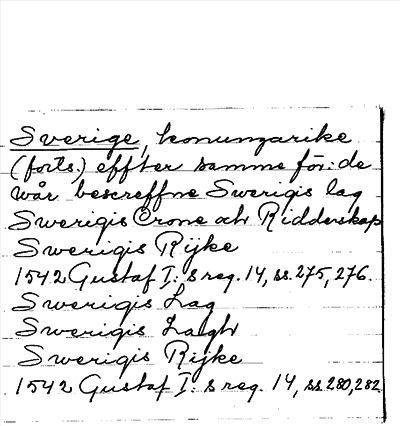 Sverige, konungarike
(forts.) effter samme för: de
wår bescreffne Swerigis lag
Swerigis Crone och Ridderskap
Swerigis Rijke
1542 Gustaf I:s reg. 14, ss. 275, 276.
Swerigis Lag
Swerigis Laigh
Swerigis Rijke
1542 Gustaf I:s reg. 14, ss. 280, 282